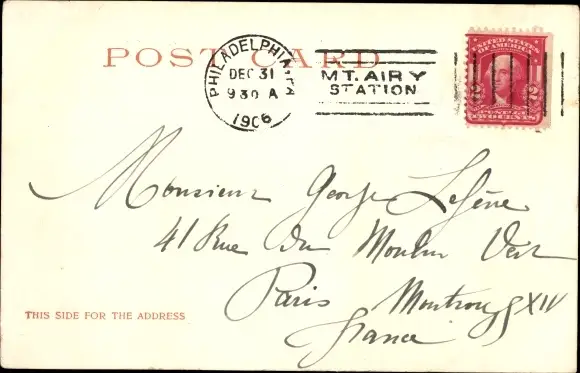 POST CARD
PHILADELPHIA, PA
DEC 31
9 30 A
1906
MT. AIRY
STATION
UNITED STATES
OF AMERICA
2 2
POSTAGE
TWO CENTS
Monsieur George
41 Rue Du Moulin Vert
Paris Montrouge XIV
France
THIS SIDE FOR THE ADDRESS